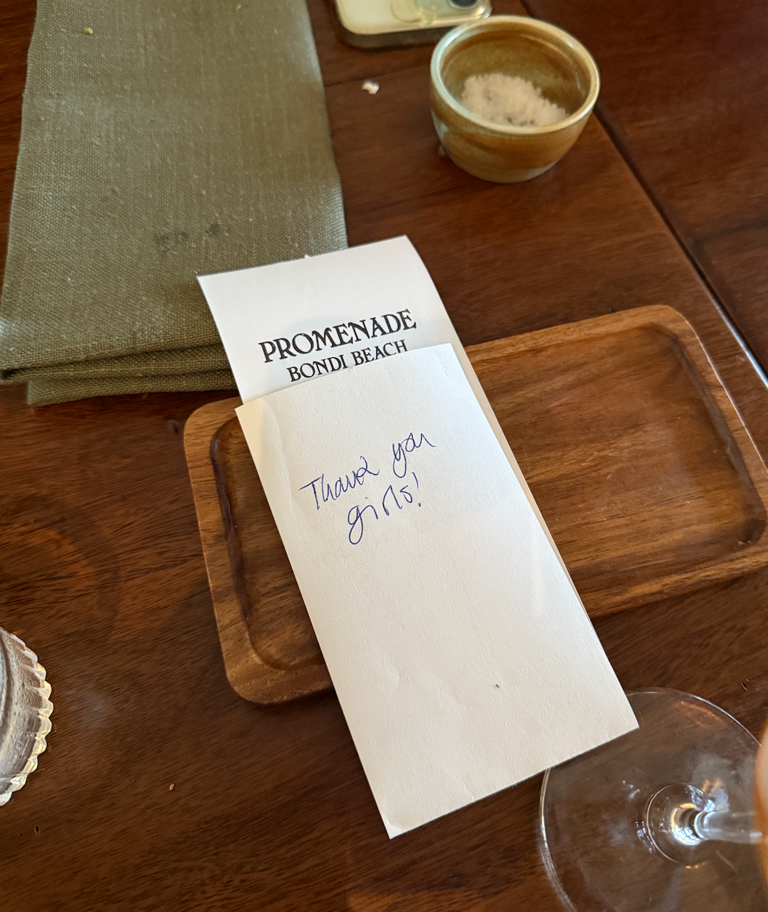 PROMENADE
BONDI BEACH
Thank you
girls!